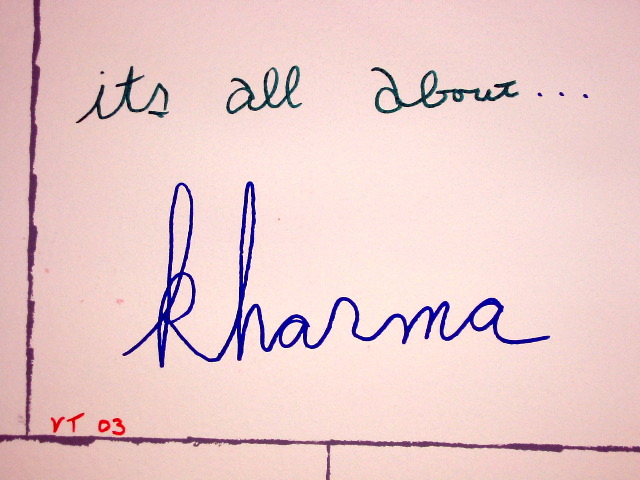 its all about...
kharma
VT 03